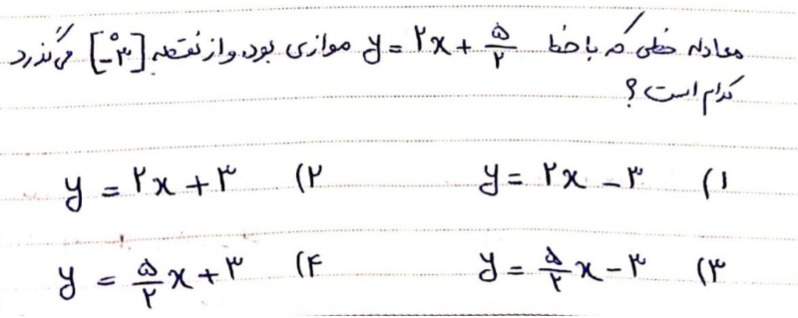 معادله خطی که با خط y = ۲x + ۵/۲ موازی بوده و از نقطه [۰ -۳] می‌گذرد
کدام است ؟
۱) y = ۲x - ۳ ۲) y = ۲x + ۳
۳) y = ۵/۲ x - ۳ ۴) y = ۵/۲ x + ۳